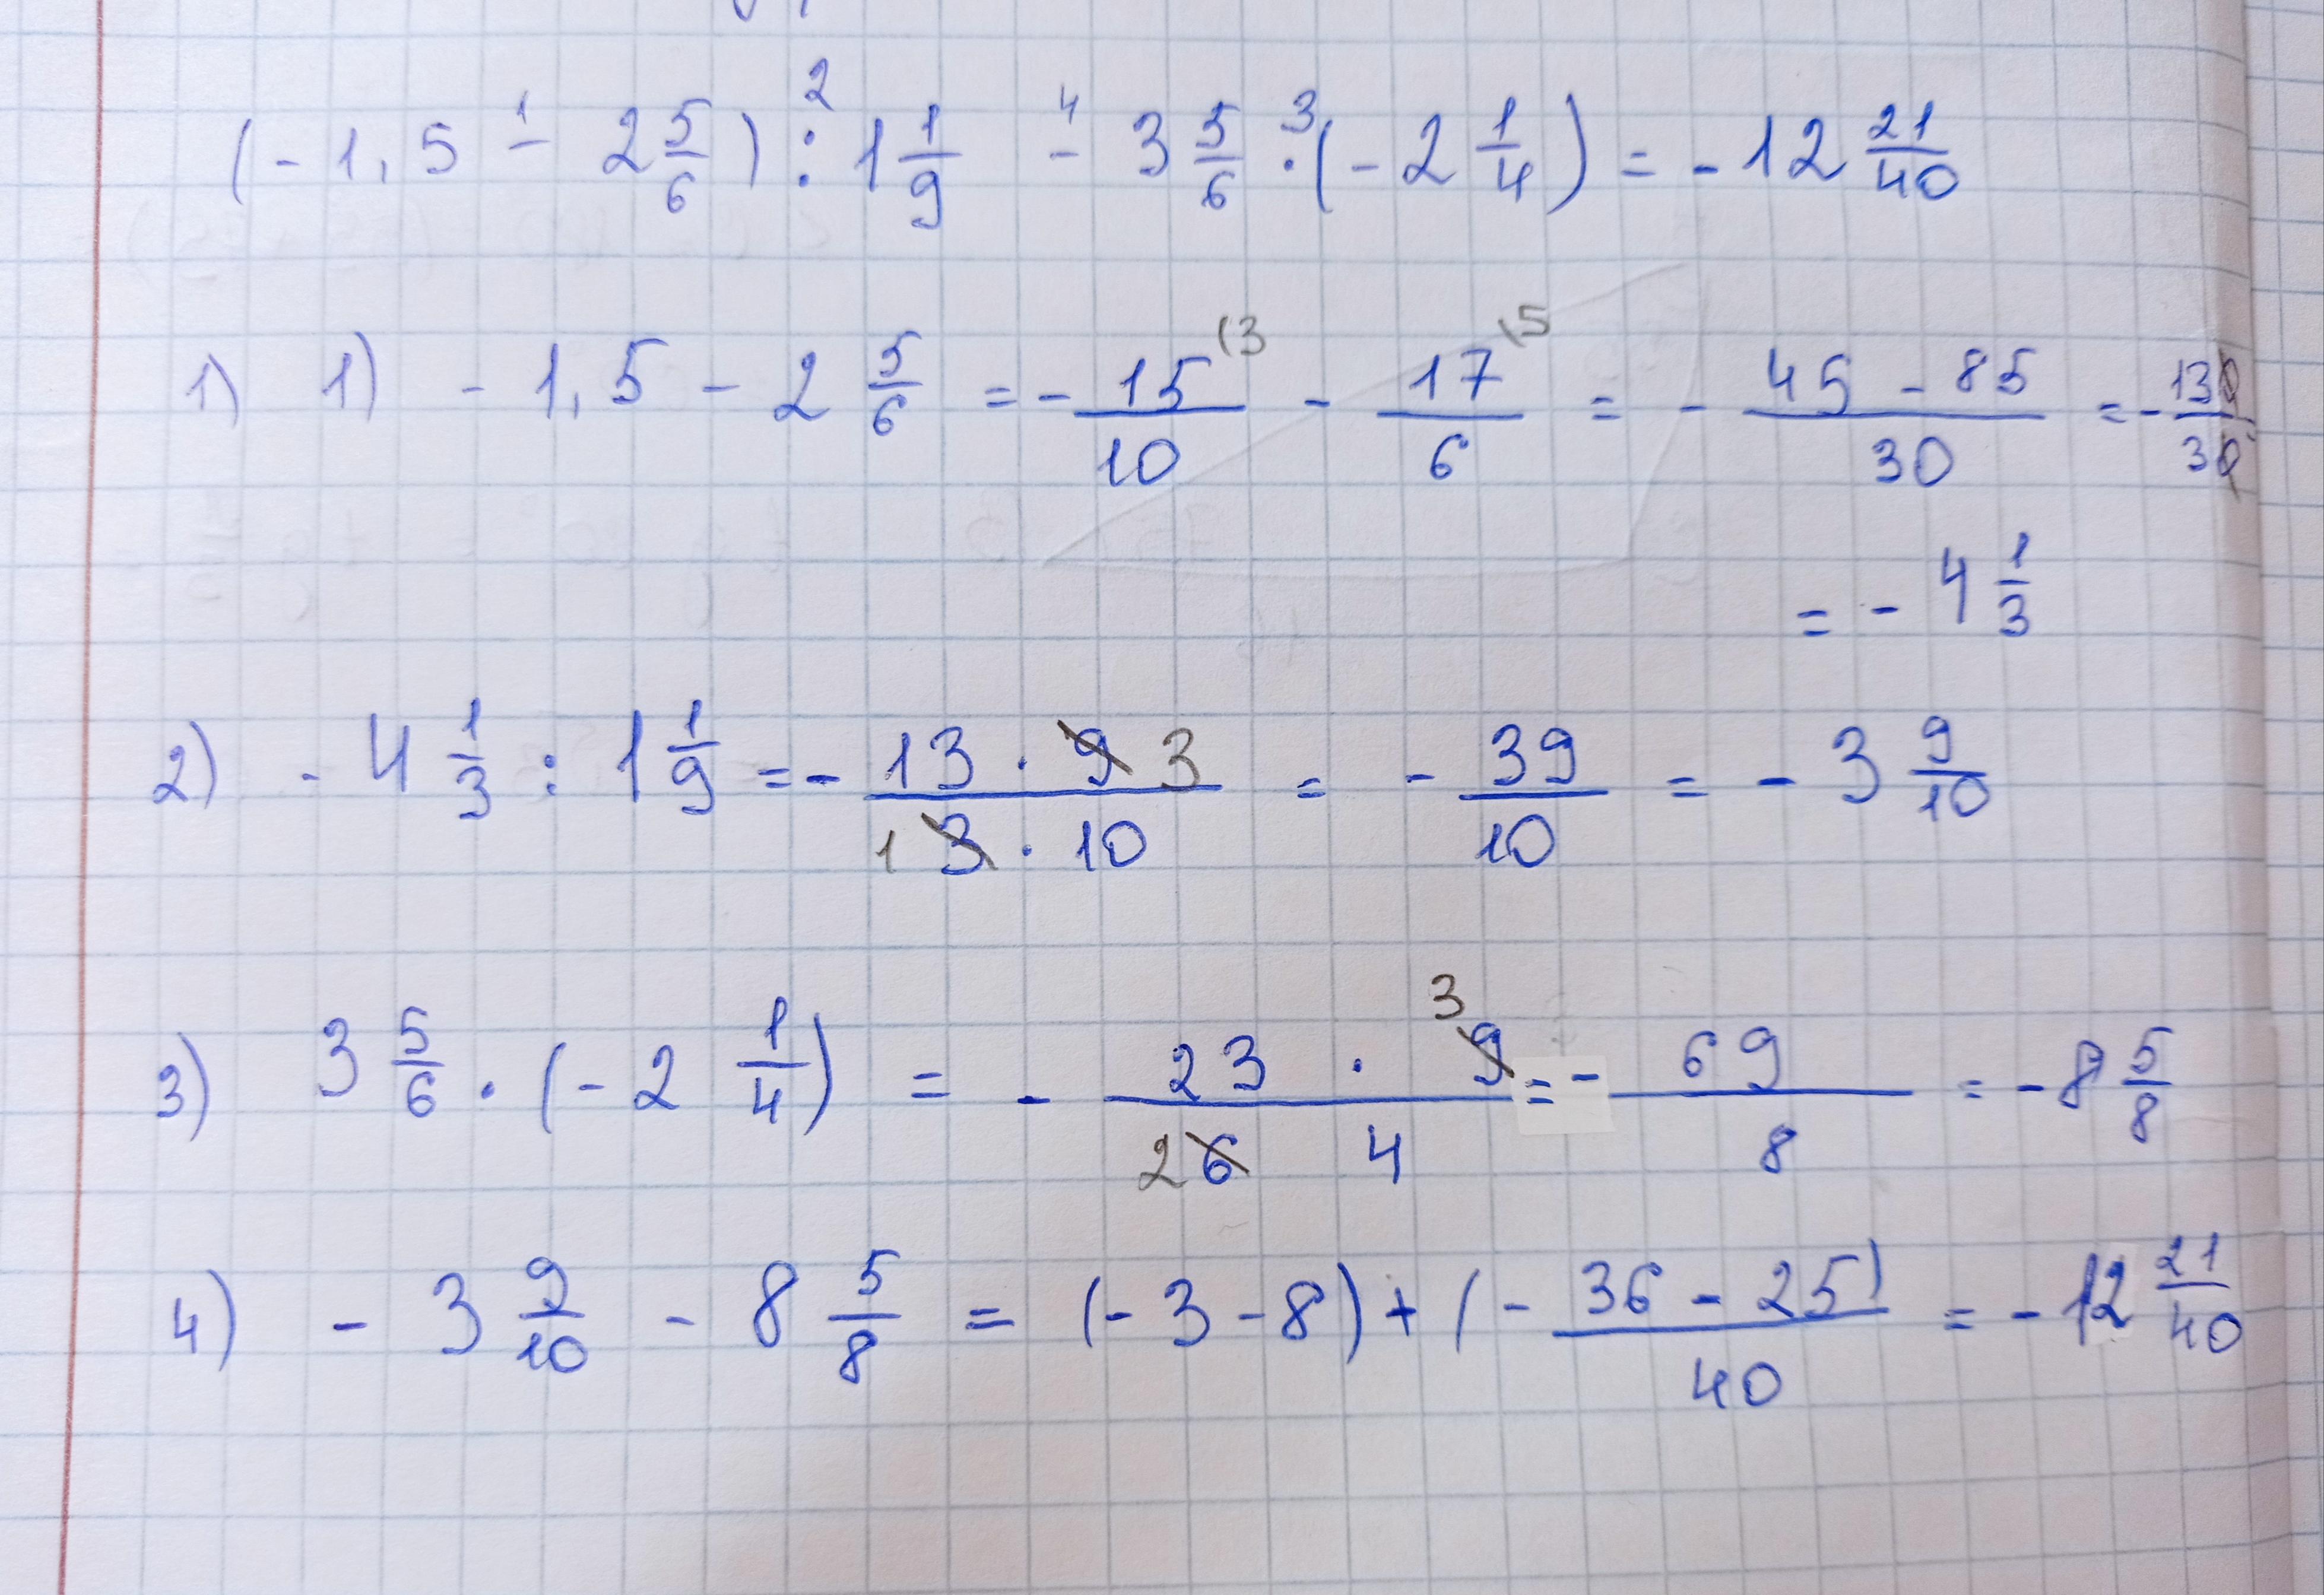 (-1,5 - 2 5/6) : 1 1/9 - 3 5/6 · (-2 1/4) = -12 21/40
1) 1) -1,5 - 2 5/6 = - 15/10 - 17/6 = - 45 - 85/30 = - 130/30
= - 4 1/3
2) - 4 1/3 : 1 1/9 = - 13 · 9 3/1 3 · 10 = - 39/10 = - 3 9/10
3) 3 5/6 · (-2 1/4) = - 23 · 3 9/2 6 4 = - 69/8 = - 8 5/8
4) - 3 9/10 - 8 5/8 = (-3 - 8) + (- 36 - 25)/40 = - 12 21/40